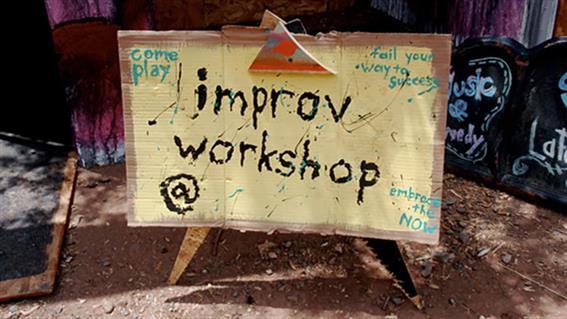 come
play
fail your
way to
success
improv
workshop
@
embrace
the
NOW
Music
edy